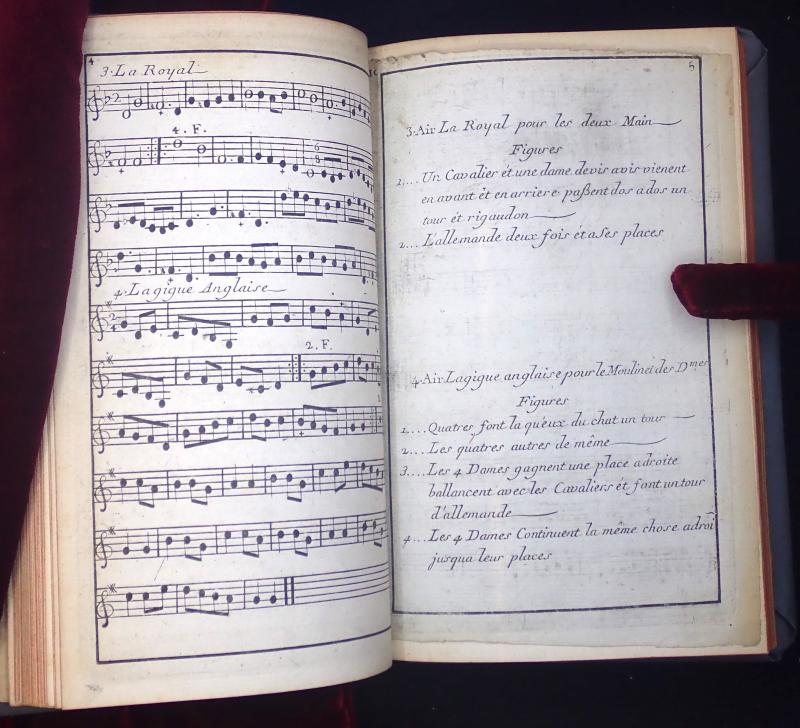 4
3. La Royal
4. F.
4. Lagigue Anglaise
2. F.
5
3. Air La Royal pour les deux Main
Figures
1... Un Cavalier et une dame devis avis vienent
en avant et en arriere paßent dos a dos un
tour et rigaudon
2... L'allemande deux fois et a Ses places
4. Air Lagigue anglaise pour le Moulinet des Dmes
Figures
1... Quatres font la queux du chat un tour
2... Les quatres autres de même
3... Les 4 Dames gagnent une place adroite
ballancent avec les Cavaliers et font un tour
d'allemande
4... Les 4 Dames Continuent la même chose adroi
jusqua leur places